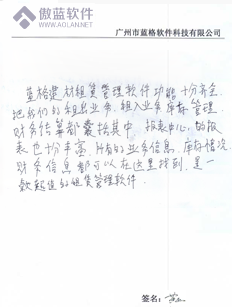 傲蓝软件
WWW.AOLAN.NET
广州市蓝格软件科技有限公司
蓝格建材租赁管理软件功能十分齐全
把我们的租出业务、租入业务库存管理
财务结算都囊括其中，报表中心的报
表也十分丰富，所有的业务信息、库存情况
财务信息都可以在这里找到，是一
款超值的租赁管理软件。
签名：